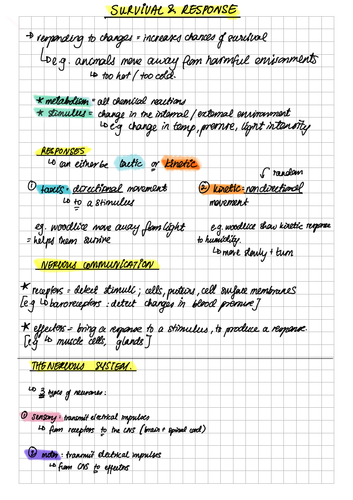 SURVIVAL & RESPONSE
→ responding to changes = increases chances of survival
↳ e.g. animals move away from harmful environments
↳ too hot / too cold.
* metabolism = all chemical reactions
* stimulus = change in the internal / external environment
↳ e.g change in temp, pressure, light intensity
RESPONSES
↳ can either be tactic or kinetic
random
① taxis = directional movement
↳ to a stimulus
② kinetic = nondirectional
movement
eg. woodlice move away from light
= helps them survive
e.g. woodlice show kinetic response
to humidity.
↳ move slowly + turn
NERVOUS COMMUNICATION
* receptors = detect stimuli ; cells, proteins, cell surface membranes
[e.g ↳ baroreceptors : detect changes in blood pressure]
* effectors = bring a response to a stimulus, to produce a response.
[e.g ↳ muscle cells, glands]
THE NERVOUS SYSTEM.
↳ 3 types of neurones:
① sensory : transmit electrical impulses
↳ from receptors to the CNS (brain + spinal cord)
② motor : transmit electrical impulses
↳ from CNS to effectors